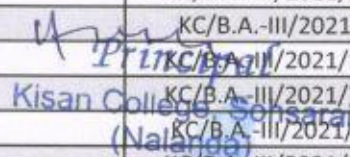 KC/B.A.-III/2021
Principal KC/B.A.-III/2021/
Kisan College, Sohsarai KC/B.A.-III/2021/
(Nalanda) KC/B.A.-III/2021/
KC/B.A.-III/2021/